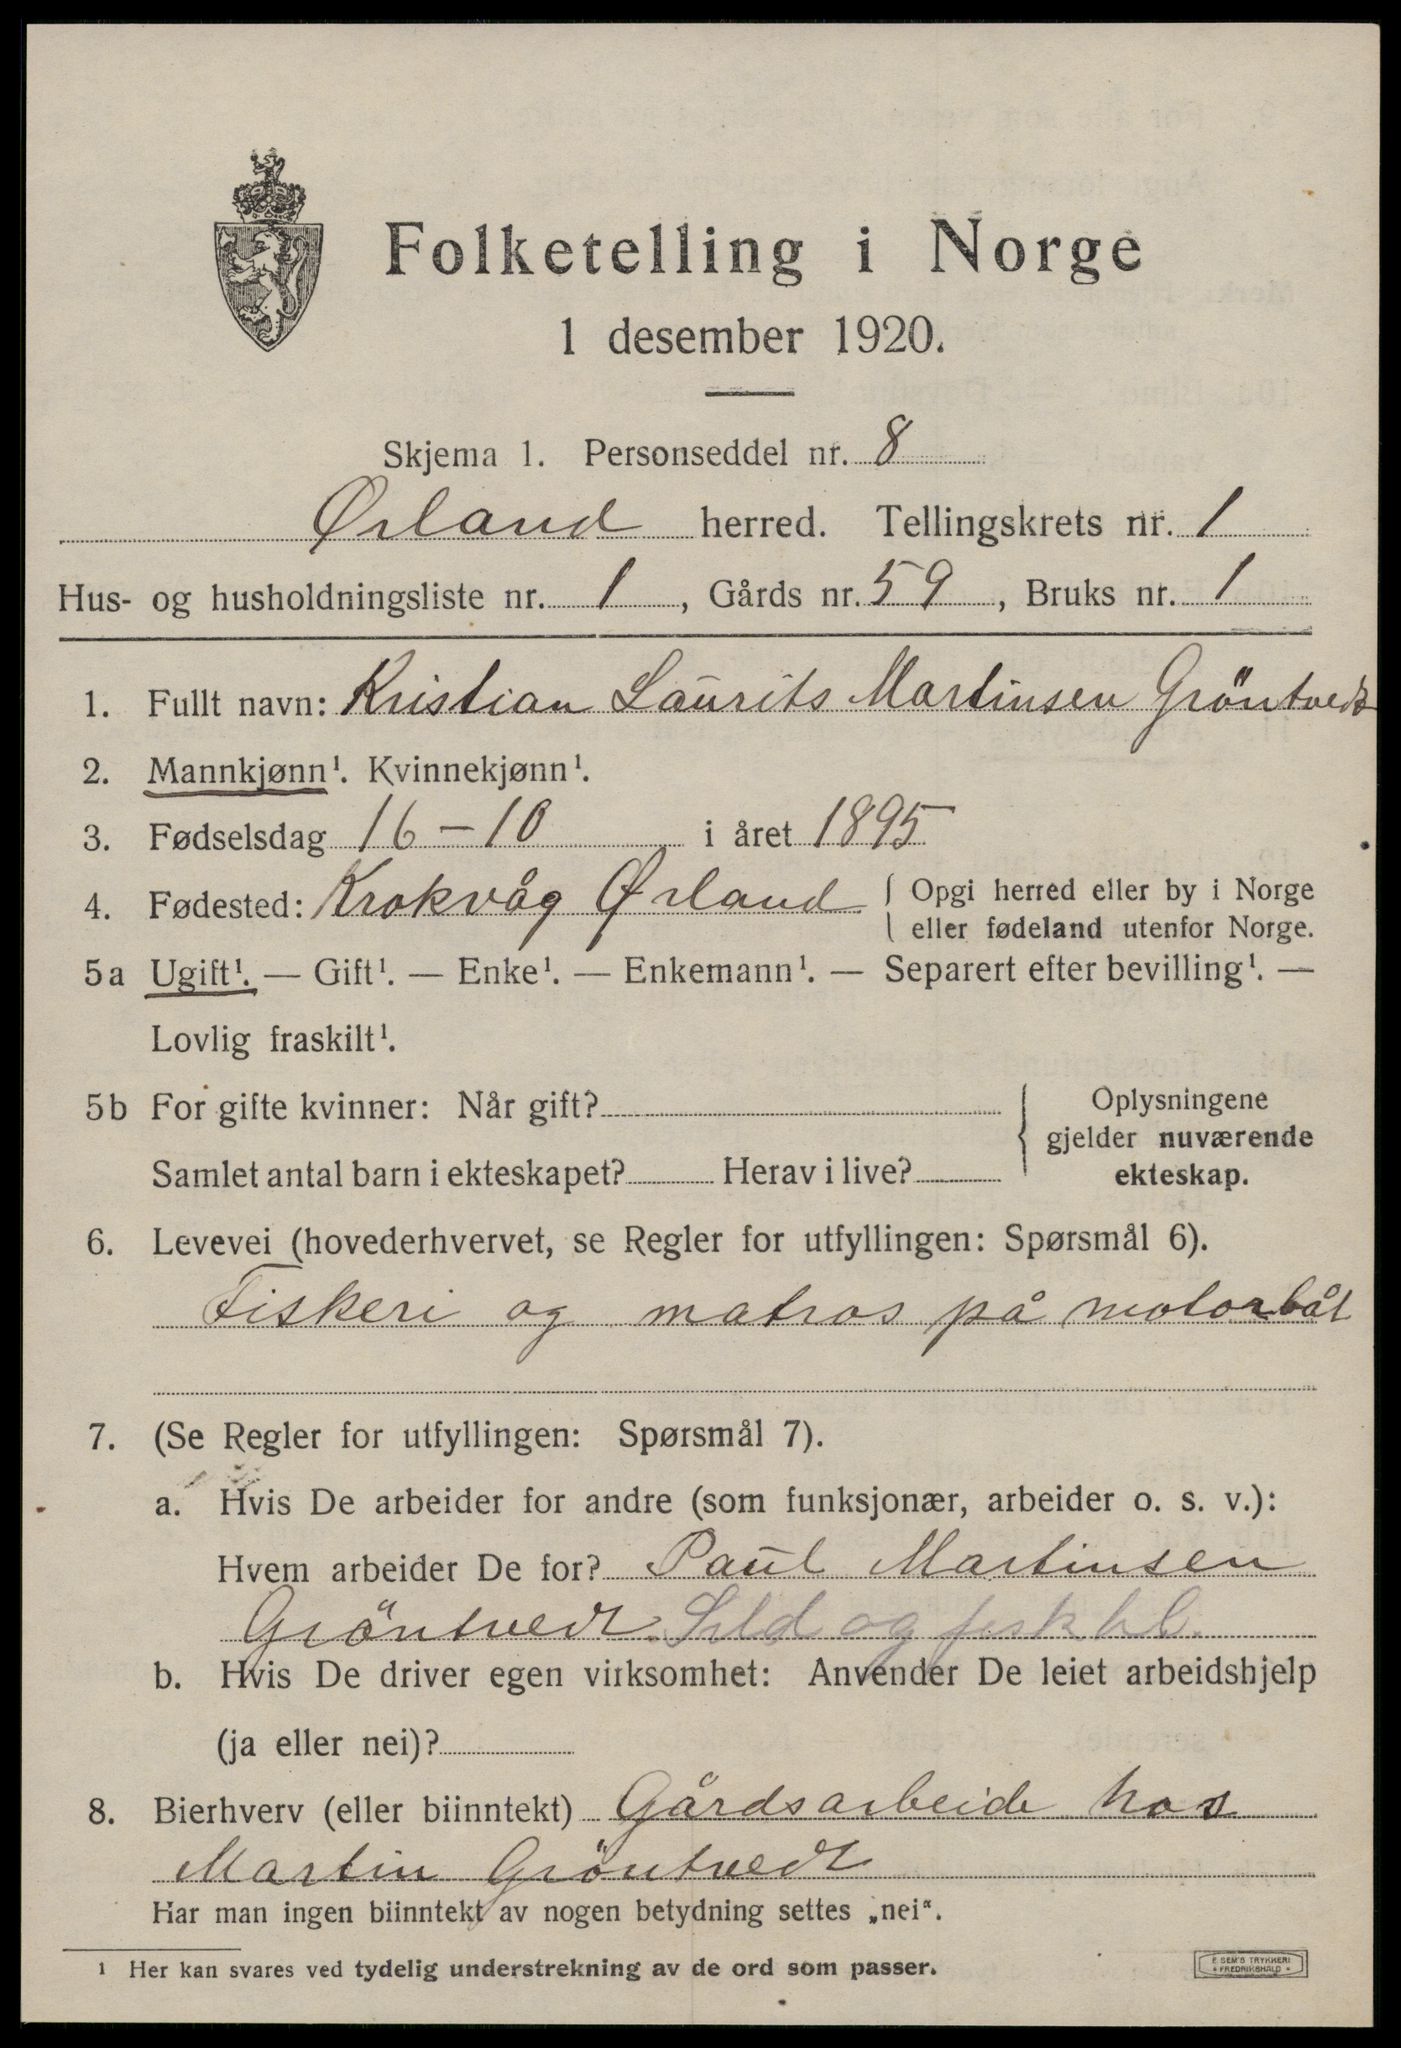 Folketelling i Norge
1 desember 1920.
Skjema 1. Personseddel nr. 8
Ørland herred. Tellingskrets nr. 1
Hus- og husholdningsliste nr. 1, Gårds nr. 59, Bruks nr. 1
1. Fullt navn: Kristian Laurits Martinsen Gröntvedt
2. Mannkjønn¹. Kvinnekjønn¹.
3. Fødselsdag 16 – 10 i året 1895
4. Fødested: Krokvåg Ørland { Opgi herred eller by i Norge
eller fødeland utenfor Norge.
5a Ugift¹. — Gift¹. — Enke¹. — Enkemann¹. — Separert efter bevilling¹. —
Lovlig fraskilt¹.
5b For gifte kvinner: Når gift?
Samlet antal barn i ekteskapet? Herav i live?
} Oplysningene
gjelder nuværende
ekteskap.
6. Levevei (hovederhvervet, se Regler for utfyllingen: Spørsmål 6).
Fiskeri og matros på motorbåt
7. (Se Regler for utfyllingen: Spørsmål 7).
a. Hvis De arbeider for andre (som funksjonær, arbeider o. s. v.):
Hvem arbeider De for? Paul Martinsen
Gröntvedt. Sild og fisk hl.
b. Hvis De driver egen virksomhet: Anvender De leiet arbeidshjelp
(ja eller nei)?
8. Bierhverv (eller biinntekt) Gårdsarbeide hos
Martin Gröntvedt
Har man ingen biinntekt av nogen betydning settes „nei“.
¹ Her kan svares ved tydelig understrekning av de ord som passer.
F. SEM'S TRYKKERI
• FREDRIKSHALD •